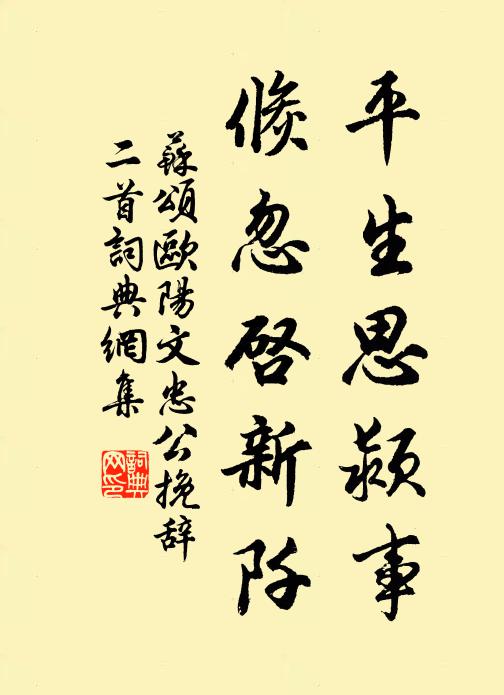 平生思颍事
倏忽启新阡
蘇頌歐陽文忠公挽辞
二首詞典網集
詞典
网印